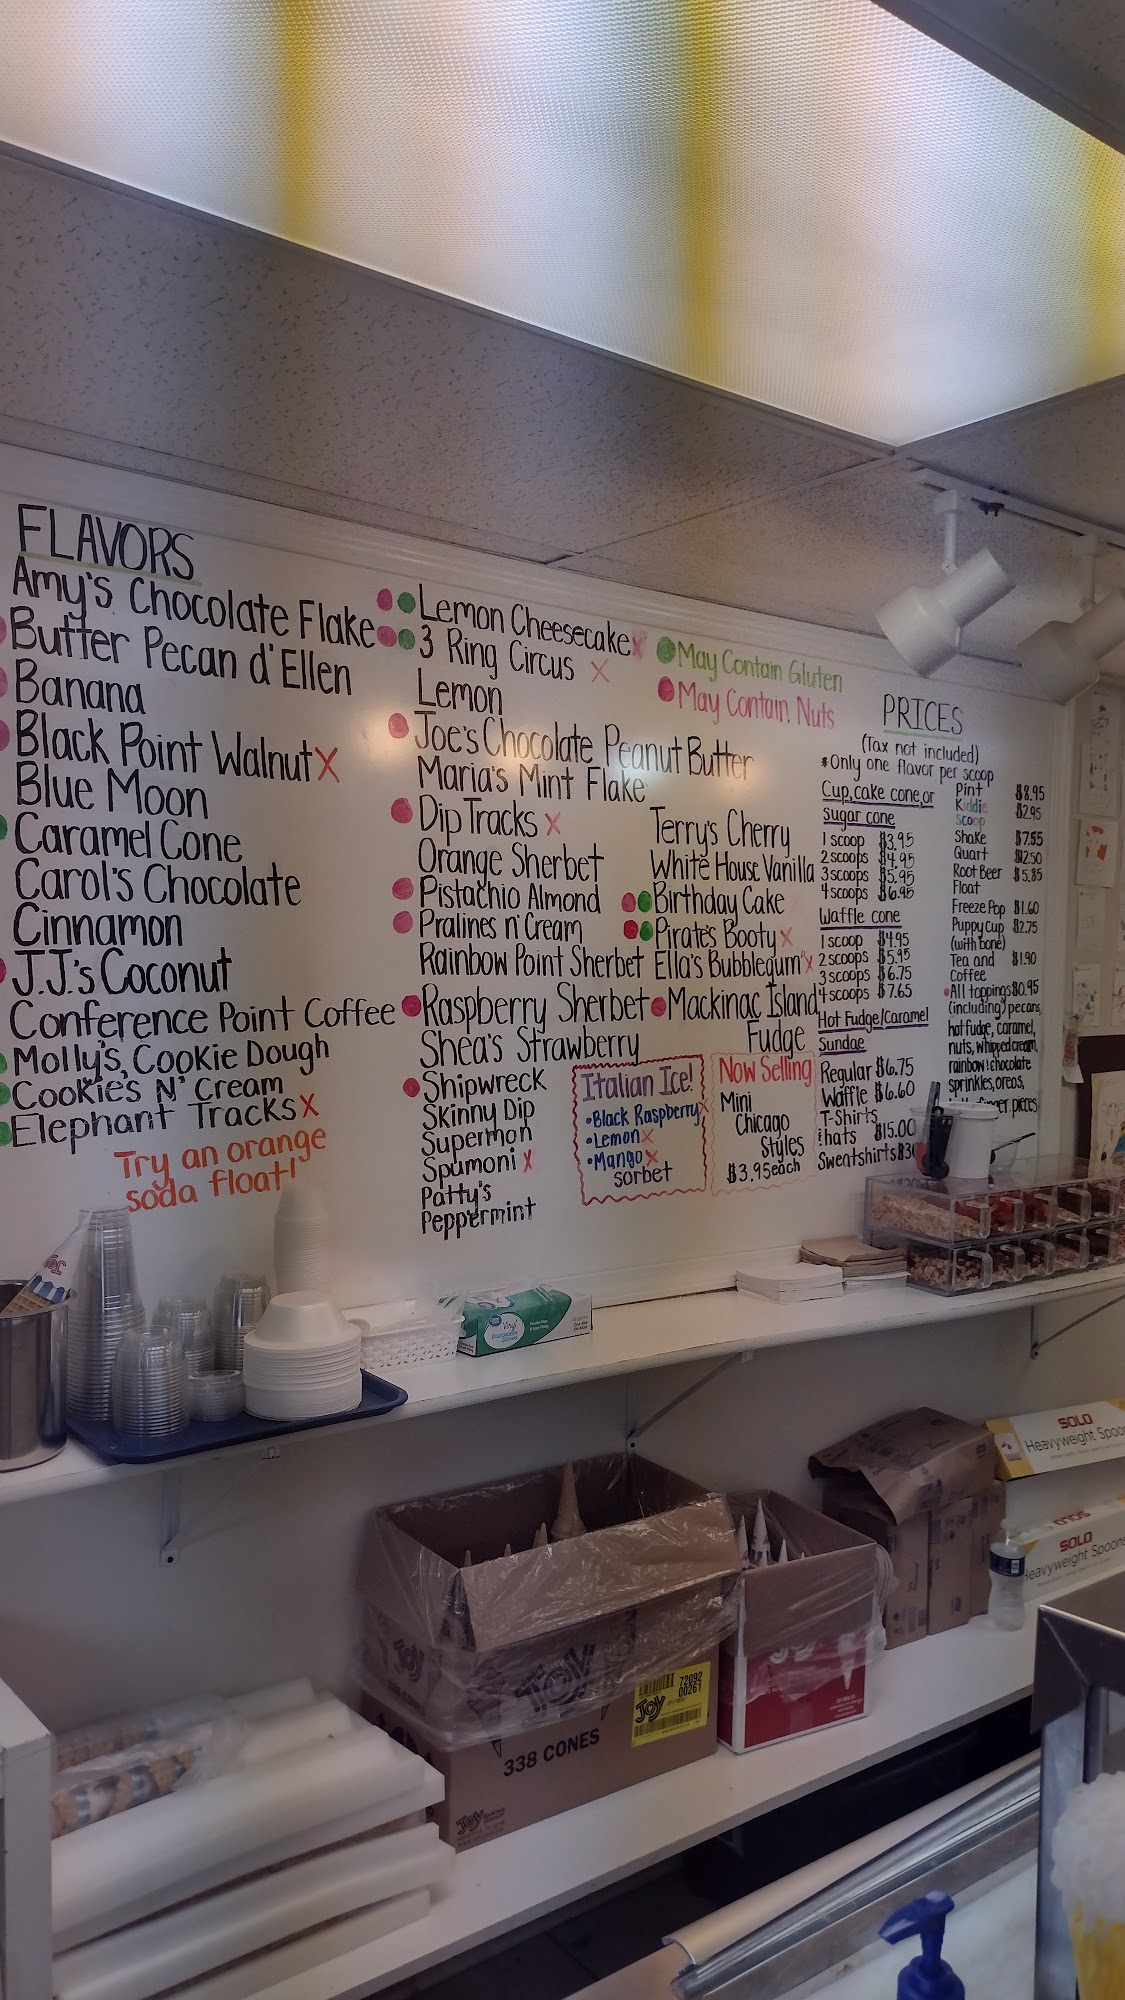 FLAVORS
Amy's Chocolate Flake
Butter Pecan d'Ellen
Banana
Black Point Walnut X
Blue Moon
Caramel Cone
Carol's Chocolate
Cinnamon
J.J.'s Coconut
Conference Point Coffee
Molly's Cookie Dough
Cookies N' Cream
Elephant Tracks X
Try an orange
soda float!
Lemon Cheesecake X
3 Ring Circus X
Lemon
Joe's Chocolate Peanut Butter
Maria's Mint Flake
Dip Tracks X
Orange Sherbet
Pistachio Almond
Pralines n' Cream
Rainbow Point Sherbet
Raspberry Sherbet
Shea's Strawberry
Shipwreck
Skinny Dip
Supermon
Spumoni X
Patty's
Peppermint
May Contain Gluten
May Contain Nuts
Terry's Cherry
White House Vanilla
Birthday Cake
Pirate's Booty X
Ella's Bubblegum" X
Mackinac Island
Fudge
Italian Ice!
• Black Raspberry X
• Lemon X
• Mango X
sorbet
Now Selling
Mini
Chicago
Styles
$3.95 each
PRICES
(Tax not included)
*Only one flavor per scoop
Cup, cake cone, or
Sugar cone
1 scoop $3.95
2 scoops $4.95
3 scoops $5.95
4 scoops $6.95
Waffle cone
1 scoop $4.95
2 scoops $5.95
3 scoops $6.75
4 scoops $7.65
Hot Fudge/Caramel
Sundae
Regular $6.75
Waffle $6.60
T-Shirts
& hats $15.00
Sweatshirts $30
Pint $8.95
Kiddie
Scoop $2.95
Shake $7.55
Quart $12.50
Root Beer $5.85
Float
Freeze Pop $1.60
Puppy Cup $2.75
(with bone)
Tea and $1.90
Coffee
All toppings $0.95
(including) pecans,
hot fudge, caramel,
nuts, whipped cream,
rainbow & chocolate
sprinkles, oreos,
pieces
Joy
338 CONES
Joy
72092
00261
SOLO
Heavyweight Spoo
SOLO
Heavyweight Spoons